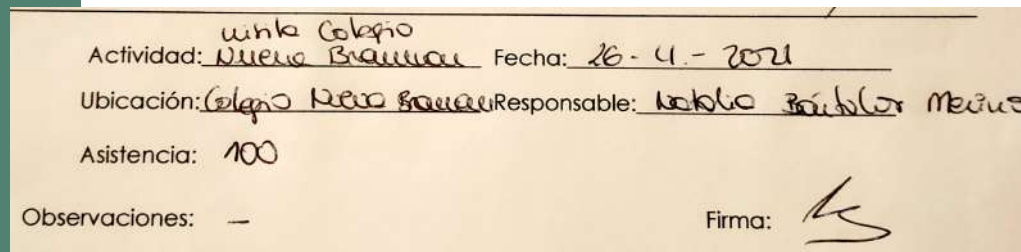 visita Colegio
Actividad: Nuevo Fecha: 26-4.-2021
Ubicación: Colegio Nuevo Responsable: Natalia Merino
Asistencia: 100
Observaciones: — Firma: